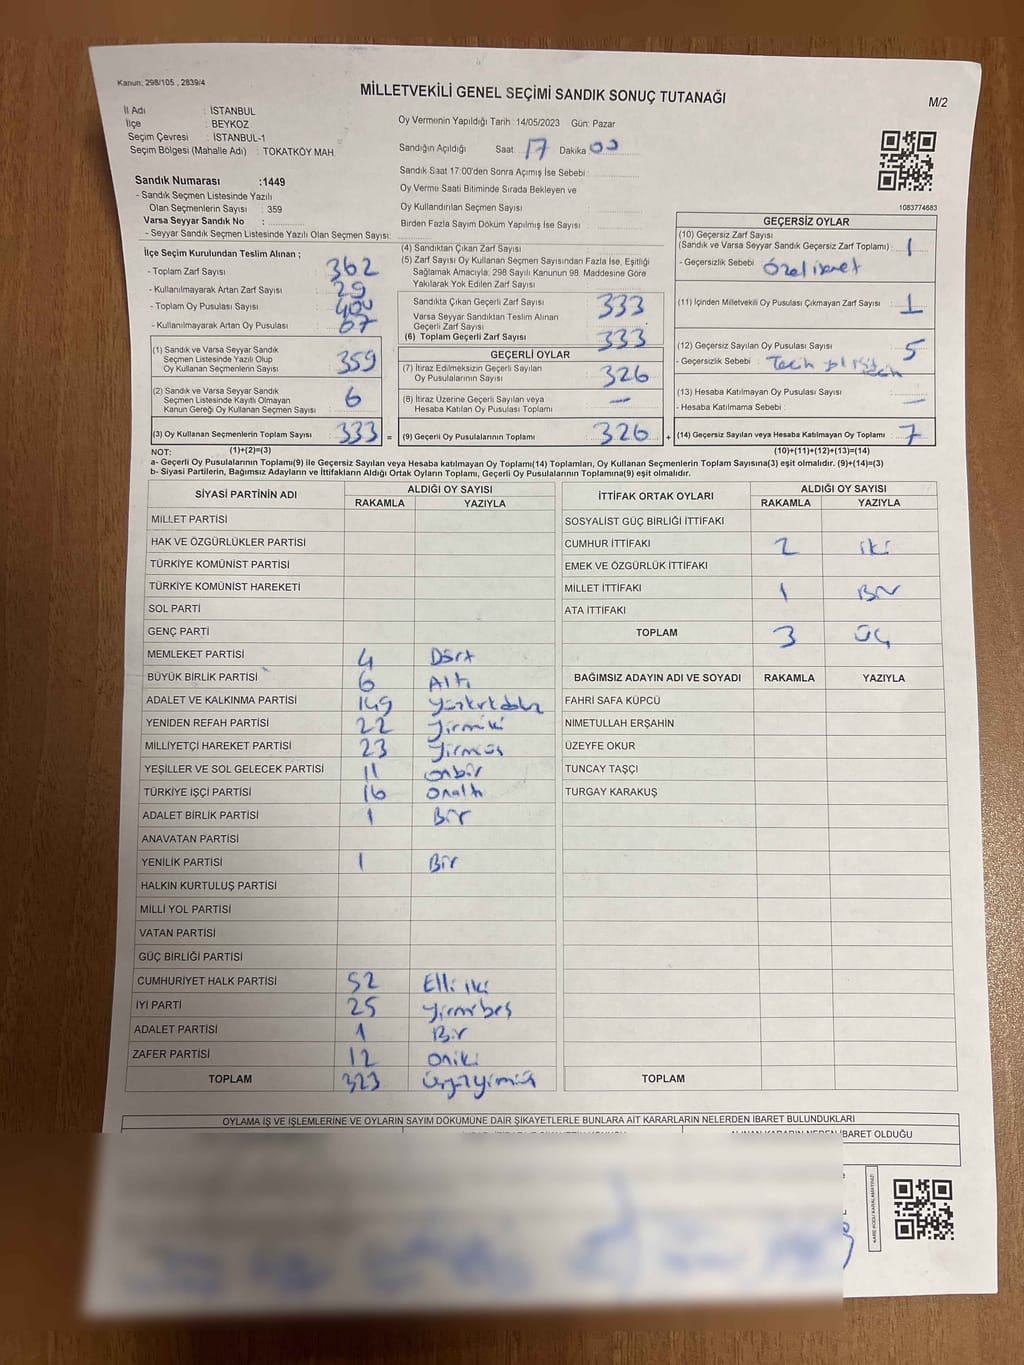 Kanun: 298/105 , 2839/4
MİLLETVEKİLİ GENEL SEÇİMİ SANDIK SONUÇ TUTANAĞI
M/2
İl Adı : İSTANBUL
İlçe : BEYKOZ
Seçim Çevresi : İSTANBUL-1
Seçim Bölgesi (Mahalle Adı) : TOKATKÖY MAH.
Sandık Numarası :1449
- Sandık Seçmen Listesinde Yazılı
Olan Seçmenlerin Sayısı : 359
Varsa Seyyar Sandık No :
- Seyyar Sandık Seçmen Listesinde Yazılı Olan Seçmen Sayısı:
Oy Vermenin Yapıldığı Tarih :14/05/2023 Gün: Pazar
Sandığın Açıldığı Saat: 17 Dakika 00
Sandık Saat 17:00'den Sonra Açımış İse Sebebi :
Oy Verme Saati Bitiminde Sırada Bekleyen ve
Oy Kullandırılan Seçmen Sayısı :
Birden Fazla Sayım Döküm Yapılmış İse Sayısı :
1083774683
İlçe Seçim Kurulundan Teslim Alınan ;
- Toplam Zarf Sayısı : 362
- Kullanılmayarak Artan Zarf Sayısı : 29
- Toplam Oy Pusulası Sayısı : 400
- Kullanılmayarak Artan Oy Pusulası : 67
(1) Sandık ve Varsa Seyyar Sandık
Seçmen Listesinde Yazılı Olup
Oy Kullanan Seçmenlerin Sayısı : 359
(2) Sandık ve Varsa Seyyar Sandık
Seçmen Listesinde Kayıtlı Olmayan
Kanun Gereği Oy Kullanan Seçmen Sayısı : 6
(3) Oy Kullanan Seçmenlerin Toplam Sayısı : 333 =
(4) Sandıktan Çıkan Zarf Sayısı :
(5) Zarf Sayısı Oy Kullanan Seçmen Sayısından Fazla İse, Eşitliği
Sağlamak Amacıyla; 298 Sayılı Kanunun 98. Maddesine Göre
Yakılarak Yok Edilen Zarf Sayısı :
Sandıkta Çıkan Geçerli Zarf Sayısı : 333
Varsa Seyyar Sandıktan Teslim Alınan
Geçerli Zarf Sayısı :
(6) Toplam Geçerli Zarf Sayısı : 333
GEÇERLİ OYLAR
(7) İtiraz Edilmeksizin Geçerli Sayılan
Oy Pusulalarının Sayısı : 326
(8) İtiraz Üzerine Geçerli Sayılan veya
Hesaba Katılan Oy Pusulası Toplamı : —
(9) Geçerli Oy Pusulalarının Toplamı : 326 +
GEÇERSİZ OYLAR
(10) Geçersiz Zarf Sayısı
(Sandık ve Varsa Seyyar Sandık Geçersiz Zarf Toplamı) : 1
- Geçersizlik Sebebi : Özel işaret
(11) İçinden Milletvekili Oy Pusulası Çıkmayan Zarf Sayısı : 1
(12) Geçersiz Sayılan Oy Pusulası Sayısı : 5
- Geçersizlik Sebebi :
(13) Hesaba Katılmayan Oy Pusulası Sayısı : —
- Hesaba Katılmama Sebebi :
(14) Geçersiz Sayılan veya Hesaba Katılmayan Oy Toplamı : 7
NOT: (1)+(2)=(3) (10)+(11)+(12)+(13)=(14)
a- Geçerli Oy Pusulalarının Toplamı(9) ile Geçersiz Sayılan veya Hesaba katılmayan Oy Toplamı(14) Toplamları, Oy Kullanan Seçmenlerin Toplam Sayısına(3) eşit olmalıdır. (9)+(14)=(3)
b- Siyasi Partilerin, Bağımsız Adayların ve İttifakların Aldığı Ortak Oyların Toplamı, Geçerli Oy Pusulalarının Toplamına(9) eşit olmalıdır.
SİYASİ PARTİNİN ADI ALDIĞI OY SAYISI
RAKAMLA YAZIYLA
MİLLET PARTİSİ
HAK VE ÖZGÜRLÜKLER PARTİSİ
TÜRKİYE KOMÜNİST PARTİSİ
TÜRKİYE KOMÜNİST HAREKETİ
SOL PARTİ
GENÇ PARTİ
MEMLEKET PARTİSİ 4 Dört
BÜYÜK BİRLİK PARTİSİ 6 Altı
ADALET VE KALKINMA PARTİSİ 149 Yüzkırkdokuz
YENİDEN REFAH PARTİSİ 22 Yirmiiki
MİLLİYETÇİ HAREKET PARTİSİ 23 Yirmiüç
YEŞİLLER VE SOL GELECEK PARTİSİ 11 onbir
TÜRKİYE İŞÇİ PARTİSİ 16 Onaltı
ADALET BİRLİK PARTİSİ 1 Bir
ANAVATAN PARTİSİ
YENİLİK PARTİSİ 1 Bir
HALKIN KURTULUŞ PARTİSİ
MİLLİ YOL PARTİSİ
VATAN PARTİSİ
GÜÇ BİRLİĞİ PARTİSİ
CUMHURİYET HALK PARTİSİ 52 Elli iki
İYİ PARTİ 25 Yirmibeş
ADALET PARTİSİ 1 Bir
ZAFER PARTİSİ 12 Oniki
TOPLAM 323 Üçyüzyirmiüç
İTTİFAK ORTAK OYLARI ALDIĞI OY SAYISI
RAKAMLA YAZIYLA
SOSYALİST GÜÇ BİRLİĞİ İTTİFAKI
CUMHUR İTTİFAKI 2 iki
EMEK VE ÖZGÜRLÜK İTTİFAKI
MİLLET İTTİFAKI 1 Bir
ATA İTTİFAKI
TOPLAM 3 ÜÇ
BAĞIMSIZ ADAYIN ADI VE SOYADI RAKAMLA YAZIYLA
FAHRİ SAFA KÜPCÜ
NİMETULLAH ERŞAHİN
ÜZEYFE OKUR
TUNCAY TAŞÇI
TURGAY KARAKUŞ
TOPLAM
OYLAMA İŞ VE İŞLEMLERİNE VE OYLARIN SAYIM DÖKÜMÜNE DAİR ŞİKAYETLERLE BUNLARA AİT KARARLARIN NELERDEN İBARET BULUNDUKLARI
İBARET OLDUĞU